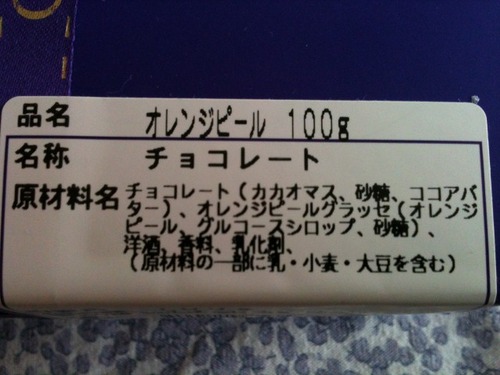 品名 オレンジピール 100g
名称 チョコレート
原材料名 チョコレート(カカオマス、砂糖、ココアバ
ター)、オレンジピールグラッセ(オレンジ
ピール、グルコースシロップ、砂糖)、
洋酒、香料、乳化剤、
(原材料の一部に乳・小麦・大豆を含む)